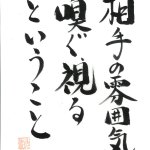 相手の雰囲気
嗅ぐ、視る
ということ